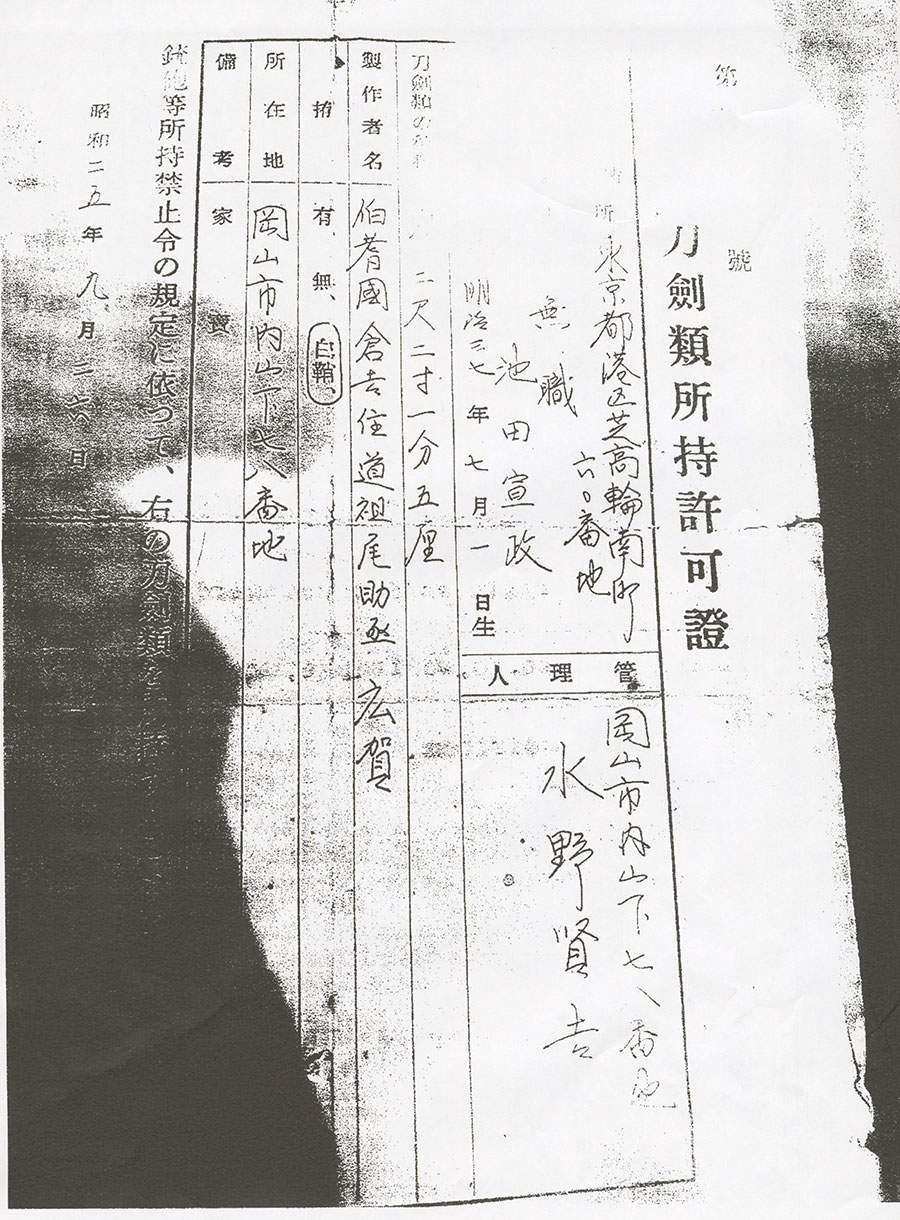 第 號
刀劍類所持許可證
所 東京都港区芝高輪南町
六〇番地
無職
池田宣政
明治三七年七月一日生
管理人
岡山市内山下七八番地
水野賢吉
刀劍類の
二尺二寸一分五厘
製作者名 伯耆國倉吉住道祖尾助丞 広賀
拵 有 無、白鞘、
所在地 岡山市内山下七八番地
備考 家寶
銃砲等所持禁止令の規定に依つて、右の刀劍類を
昭和二五年九月二六日